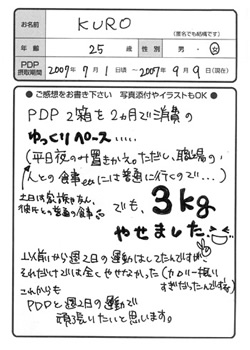 お名前 KURO
(匿名でも結構です)
年齢 25歳 性別 男・女
PDP摂取期間 2007年7月1日頃～2007年9月9日(現在)
●ご感想をお書き下さい 写真添付やイラストもOK●
PDP 2箱を2カ月で消費の
ゆっくりペース.....
(平日夜のみ置きかえ。ただし、職場の
人との食事etcには普通に行くので...)
土日は家族や友人、
彼氏との普通の食事
でも、3kg
やせました
以前から週2日の運動はしてたんですが
それだけでは全くやせなかった(カロリー摂り
すぎだったんですね)
これからも
PDPと週2日の運動で
頑張りたいと思います。